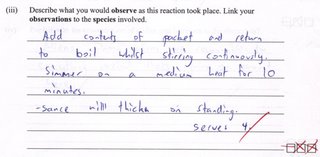 (iii) Describe what you would observe as this reaction took place. Link your
observations to the species involved.
Add contents of packet and return
to boil whilst stirring continuously.
Simmer on a medium heat for 10
minutes.
-sauce will thicken on standing.
Serves 4